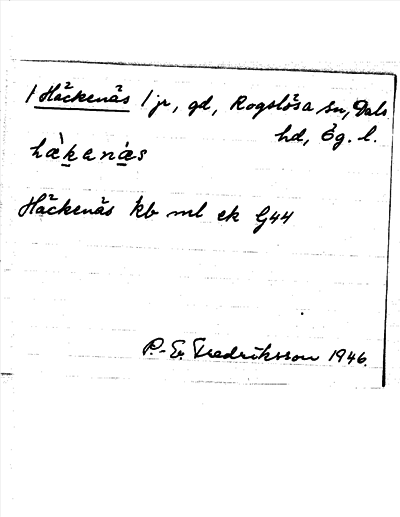 1 Häckenäs 1 jr, gd, Rogslösa sn, Dals
hd, Ög. l.
hæ̀kanæs
Häckenäs kb ml ek G44
P.-E. Fredriksson 1946.